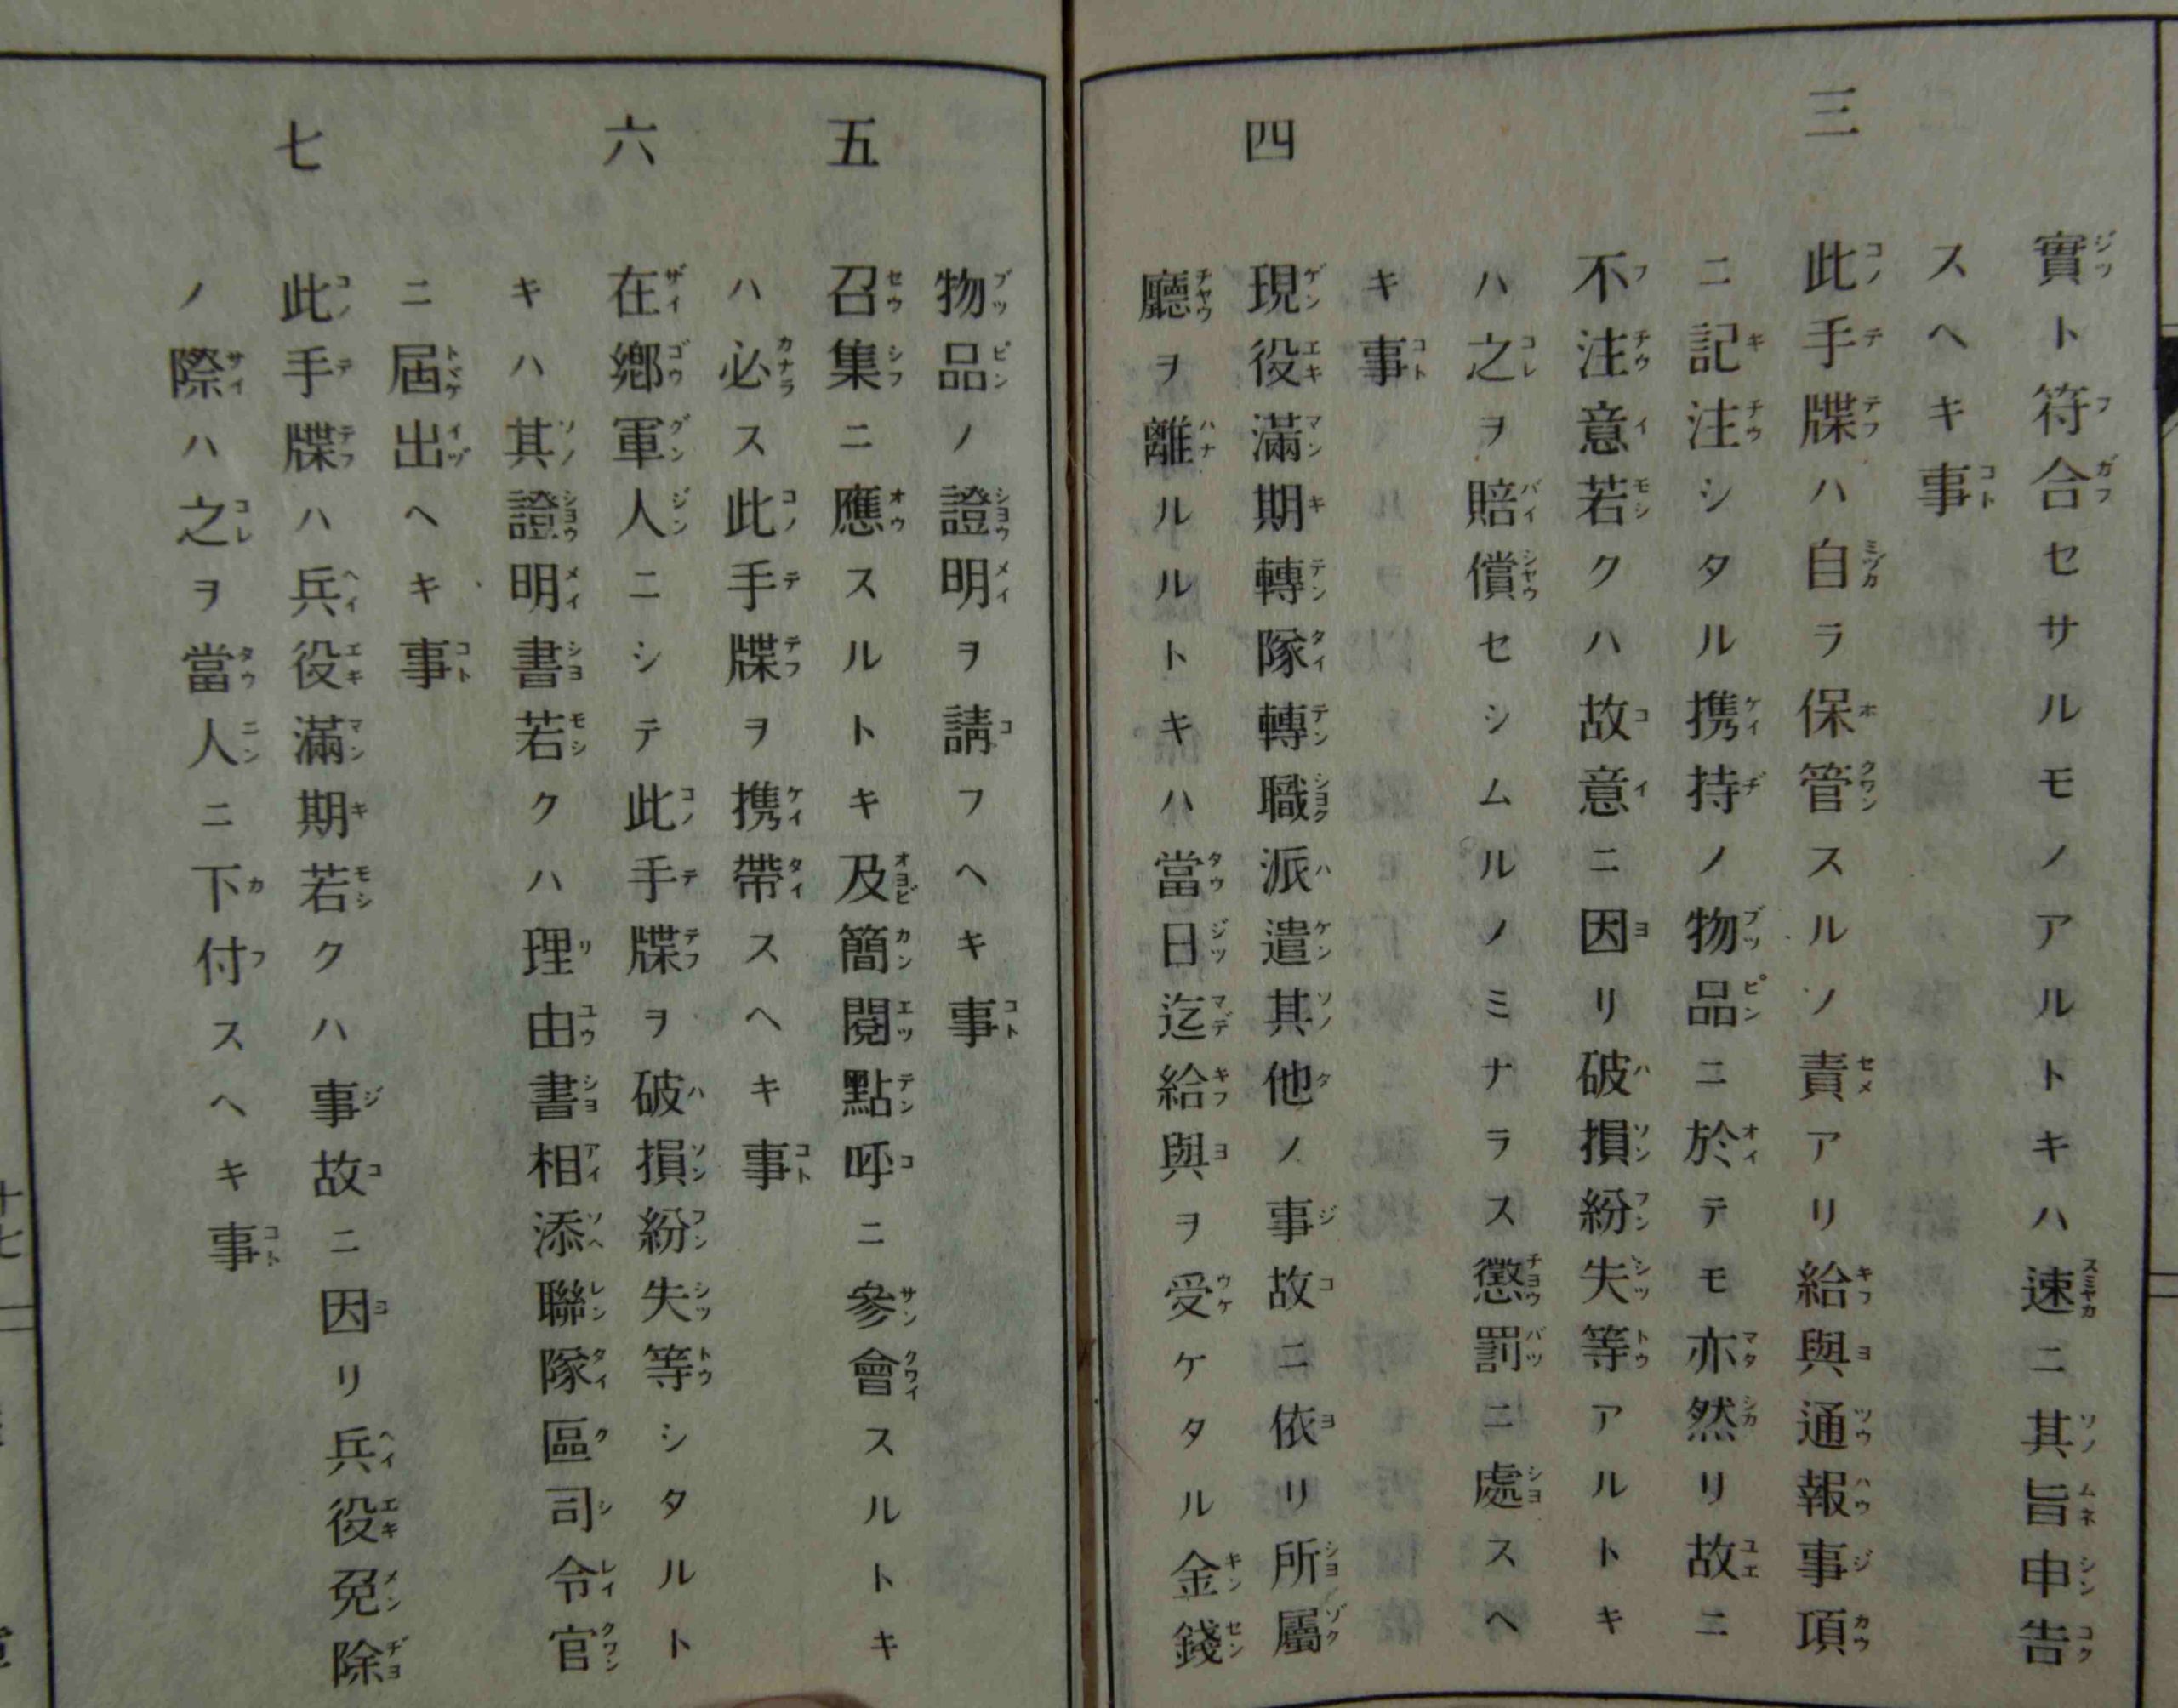 實ト符合セサルモノアルトキハ速ニ其旨申告
スヘキ事
三 此手牒ハ自ラ保管スルノ責アリ給與通報事項
ニ記注シタル携持ノ物品ニ於テモ亦然リ故ニ
不注意若クハ故意ニ因リ破損紛失等アルトキ
ハ之ヲ賠償セシムルノミナラス懲罰ニ處スヘ
キ事
四 現役滿期轉隊轉職派遣其他ノ事故ニ依リ所屬
廳ヲ離ルルトキハ當日迄給與ヲ受ケタル金錢
物品ノ證明ヲ請フヘキ事
五 召集ニ應スルトキ及簡閱點呼ニ參會スルトキ
ハ必ス此手牒ヲ携帶スヘキ事
六 在鄕軍人ニシテ此手牒ヲ破損紛失等シタルト
キハ其證明書若クハ理由書相添聯隊區司令官
ニ屆出ヘキ事
七 此手牒ハ兵役滿期若クハ事故ニ因リ兵役免除
ノ際ハ之ヲ當人ニ下付スヘキ事
十七